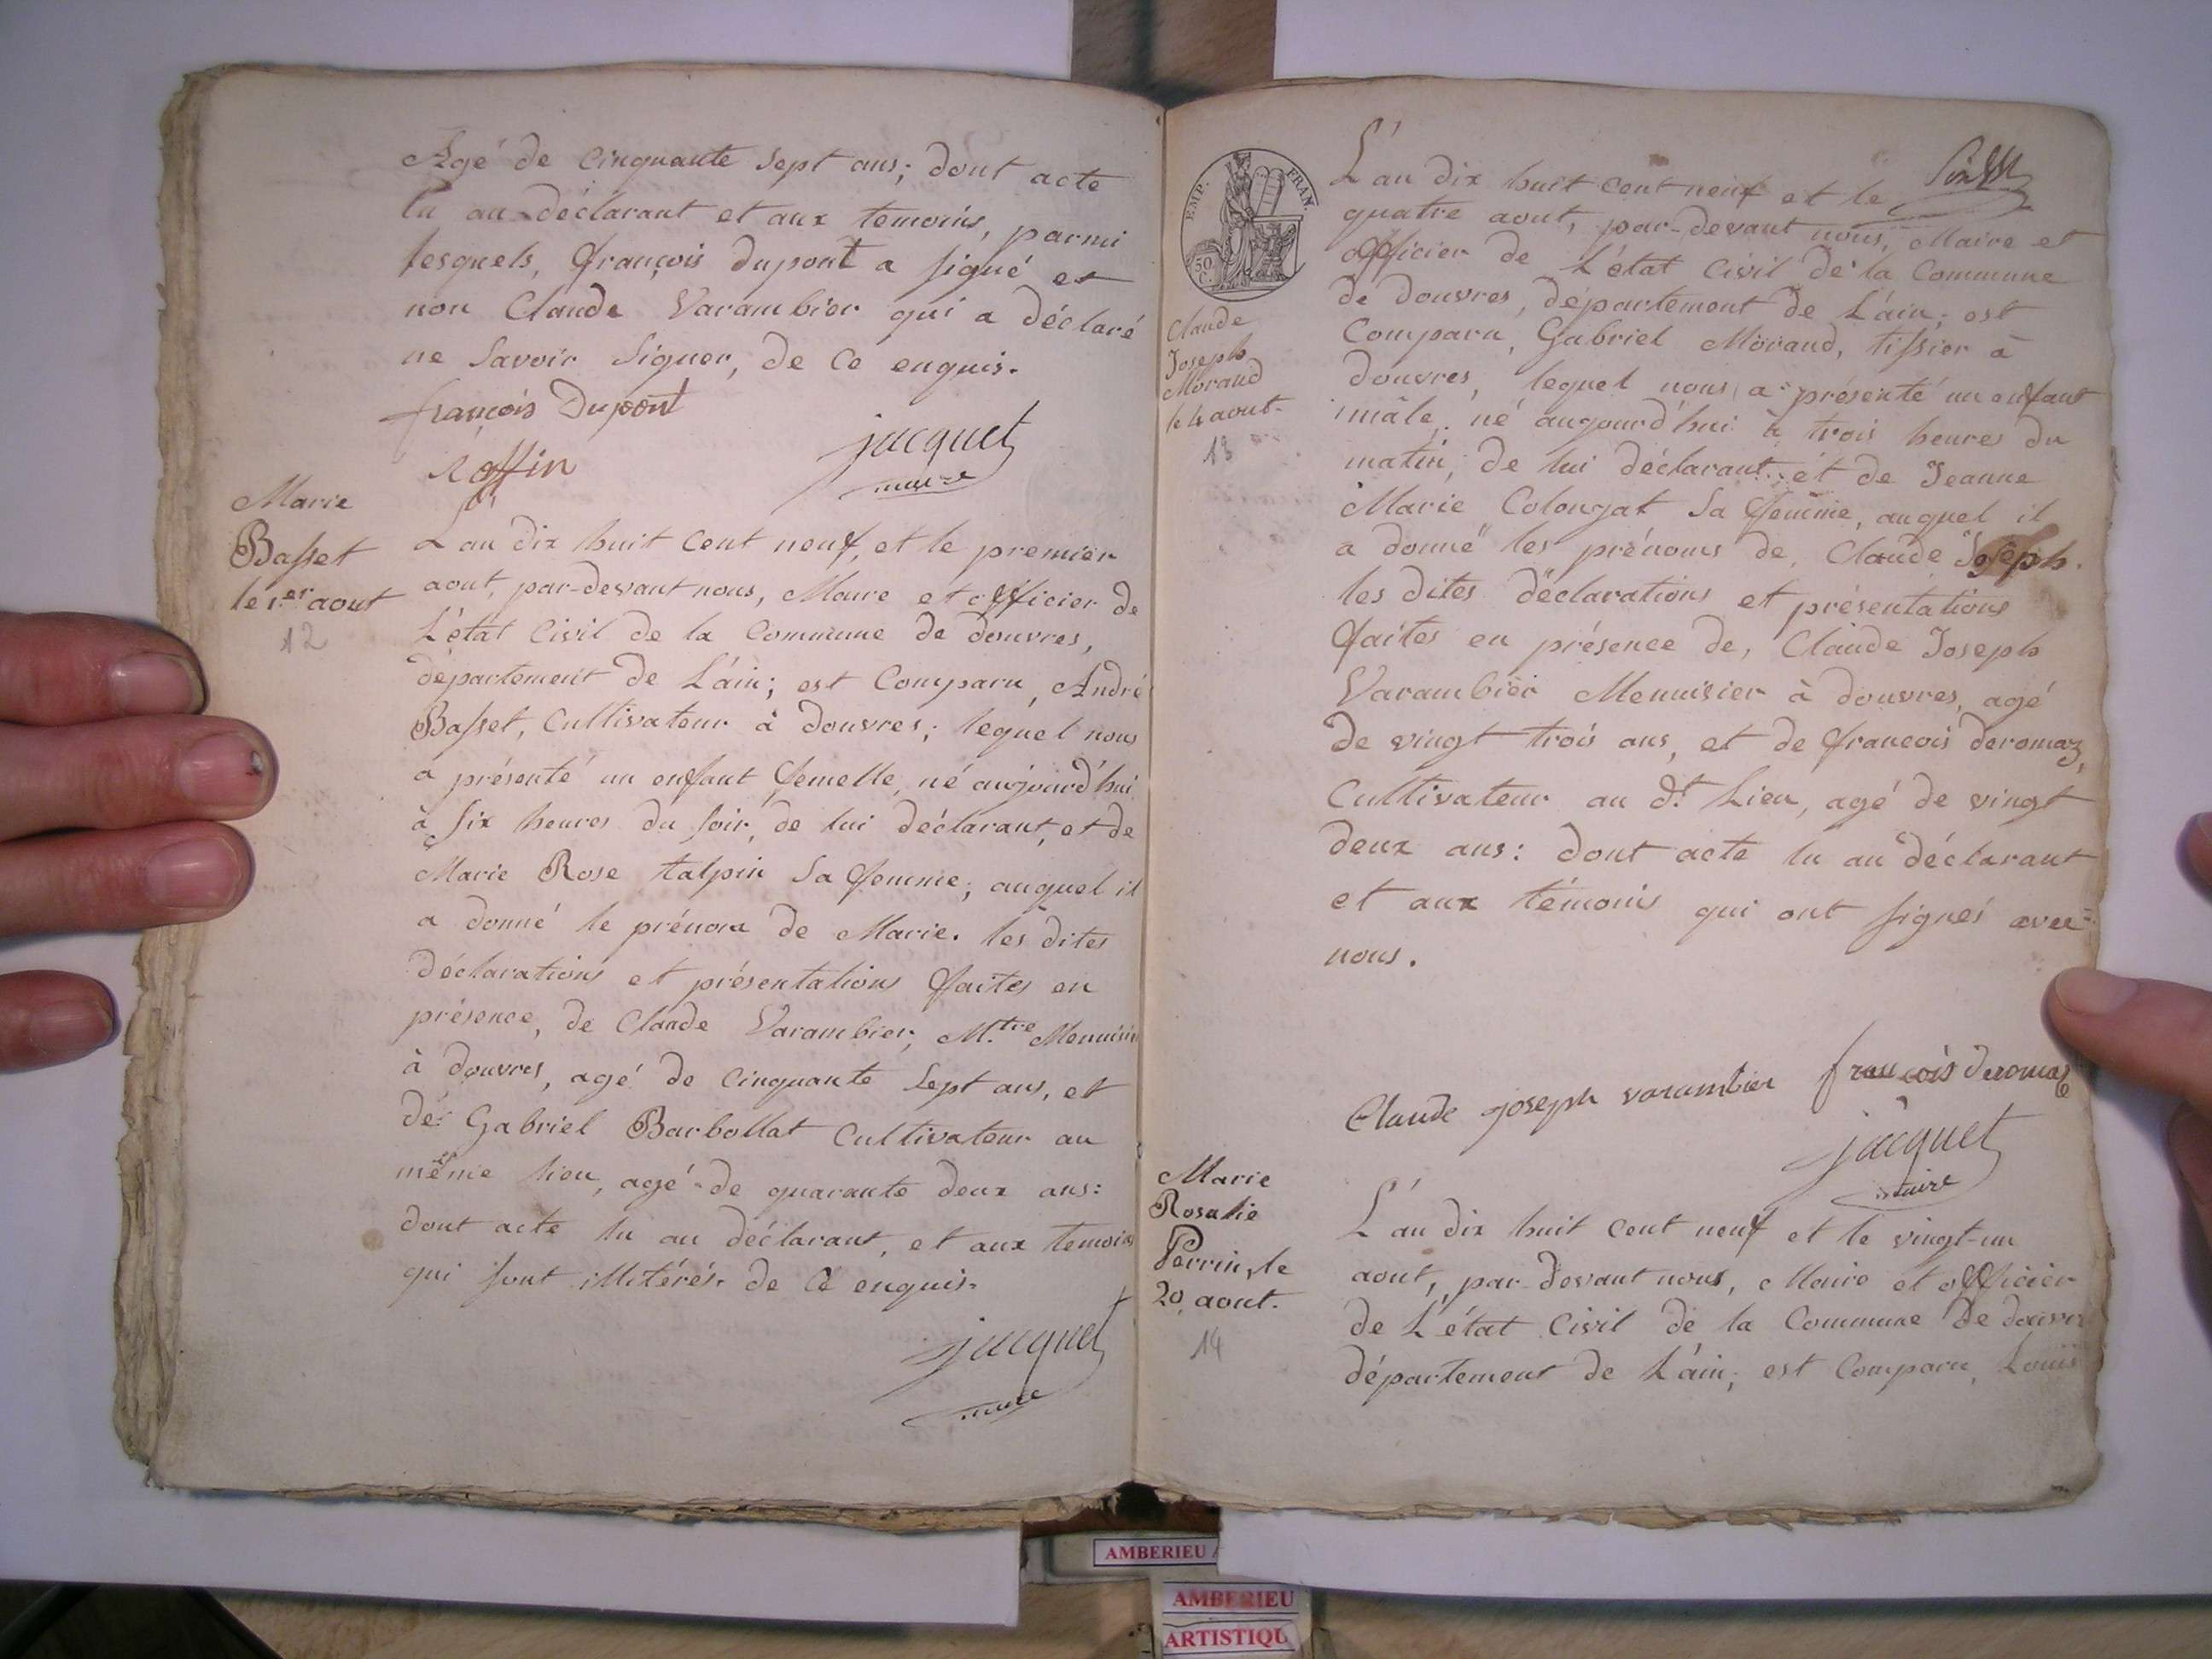 Agé de Cinquante Sept ans; dont acte
lu au déclarant et aux temoins, parmi
lesquels, françois dupont a signé et
non Claude Varambier qui a déclaré
ne Savoir Signer, de Ce enquis.
françois Dupont
Roffin
jacquet
maire
Marie
Basset
le 1.er aout
12
L'an dix huit Cent neuf, et le premier
aout, par-devant nous, Maire et officier de
L'état Civil de la Commune de douvres,
département de L'ain; est Comparu, André
Basset, Cultivateur à douvres; lequel nous
a présenté un enfant femelle, né aujourd'hui
à six heures du soir, de lui déclarant, et de
Marie Rose talpin Sa femme; auquel il
a donné le prénom de Marie. les dites
déclarations et présentations faites en
présence, de Claude Varambier, M.tre Menuisier
à douvres, agé de Cinquante Sept ans, et
de Gabriel Barbollat Cultivateur au
même lieu, agé de quarante deux ans:
dont acte lu au déclarant, et aux temoins
qui sont illitérés. de Ce enquis.
jacquet
maire
EMP. FRAN.
50
C.
Claude
Joseph
Morand
le 4 aout.
13
L'an dix huit Cent neuf et le
quatre aout, par-devant nous, Maire et
officier de L'état Civil de la Commune
de Douvres, département de L'ain; est
Comparu, Gabriel Morand, tissier à
douvres, lequel nous a présenté un enfant
mâle, né aujourd'hui à trois heures du
matin, de lui déclarant, et de Jeanne
Marie Colongat Sa femme, auquel il
a donné les prénoms de, Claude Joseph.
les dites déclarations et présentations
faites en présence de, Claude Joseph
Varambier Menuisier à douvres, agé
de vingt trois ans, et de francois deromaz,
Cultivateur au d.t Lieu, agé de vingt
deux ans: dont acte lu au déclarant
et aux témoins qui ont signés avec
nous.
Claude joseph varambier françois deromaz
jacquet
maire
Marie
Rosalie
Perrin, le
20 aout.
14
L'an dix huit Cent neuf et le vingt-un
aout, par-devant nous, Maire et officier
de L'état Civil de la Commune de douvres
département de L'ain; est Comparu, Louis
AMBERIEU
AMBERIEU
ARTISTIQU